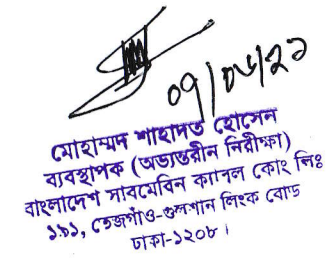 ০৭/০৬/২১
মোহাম্মদ শাহাদত হোসেন
ব্যবস্থাপক (অভ্যন্তরীন নিরীক্ষা)
বাংলাদেশ সাবমেরিন ক্যাবল কোং লিঃ
১৯১, তেজগাঁও-গুলশান লিংক রোড
ঢাকা-১২০৮।